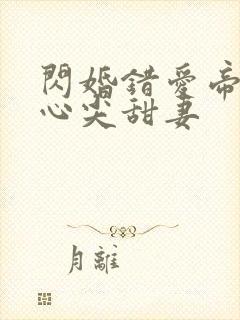 閃婚錯愛帝
心尖甜妻
月離